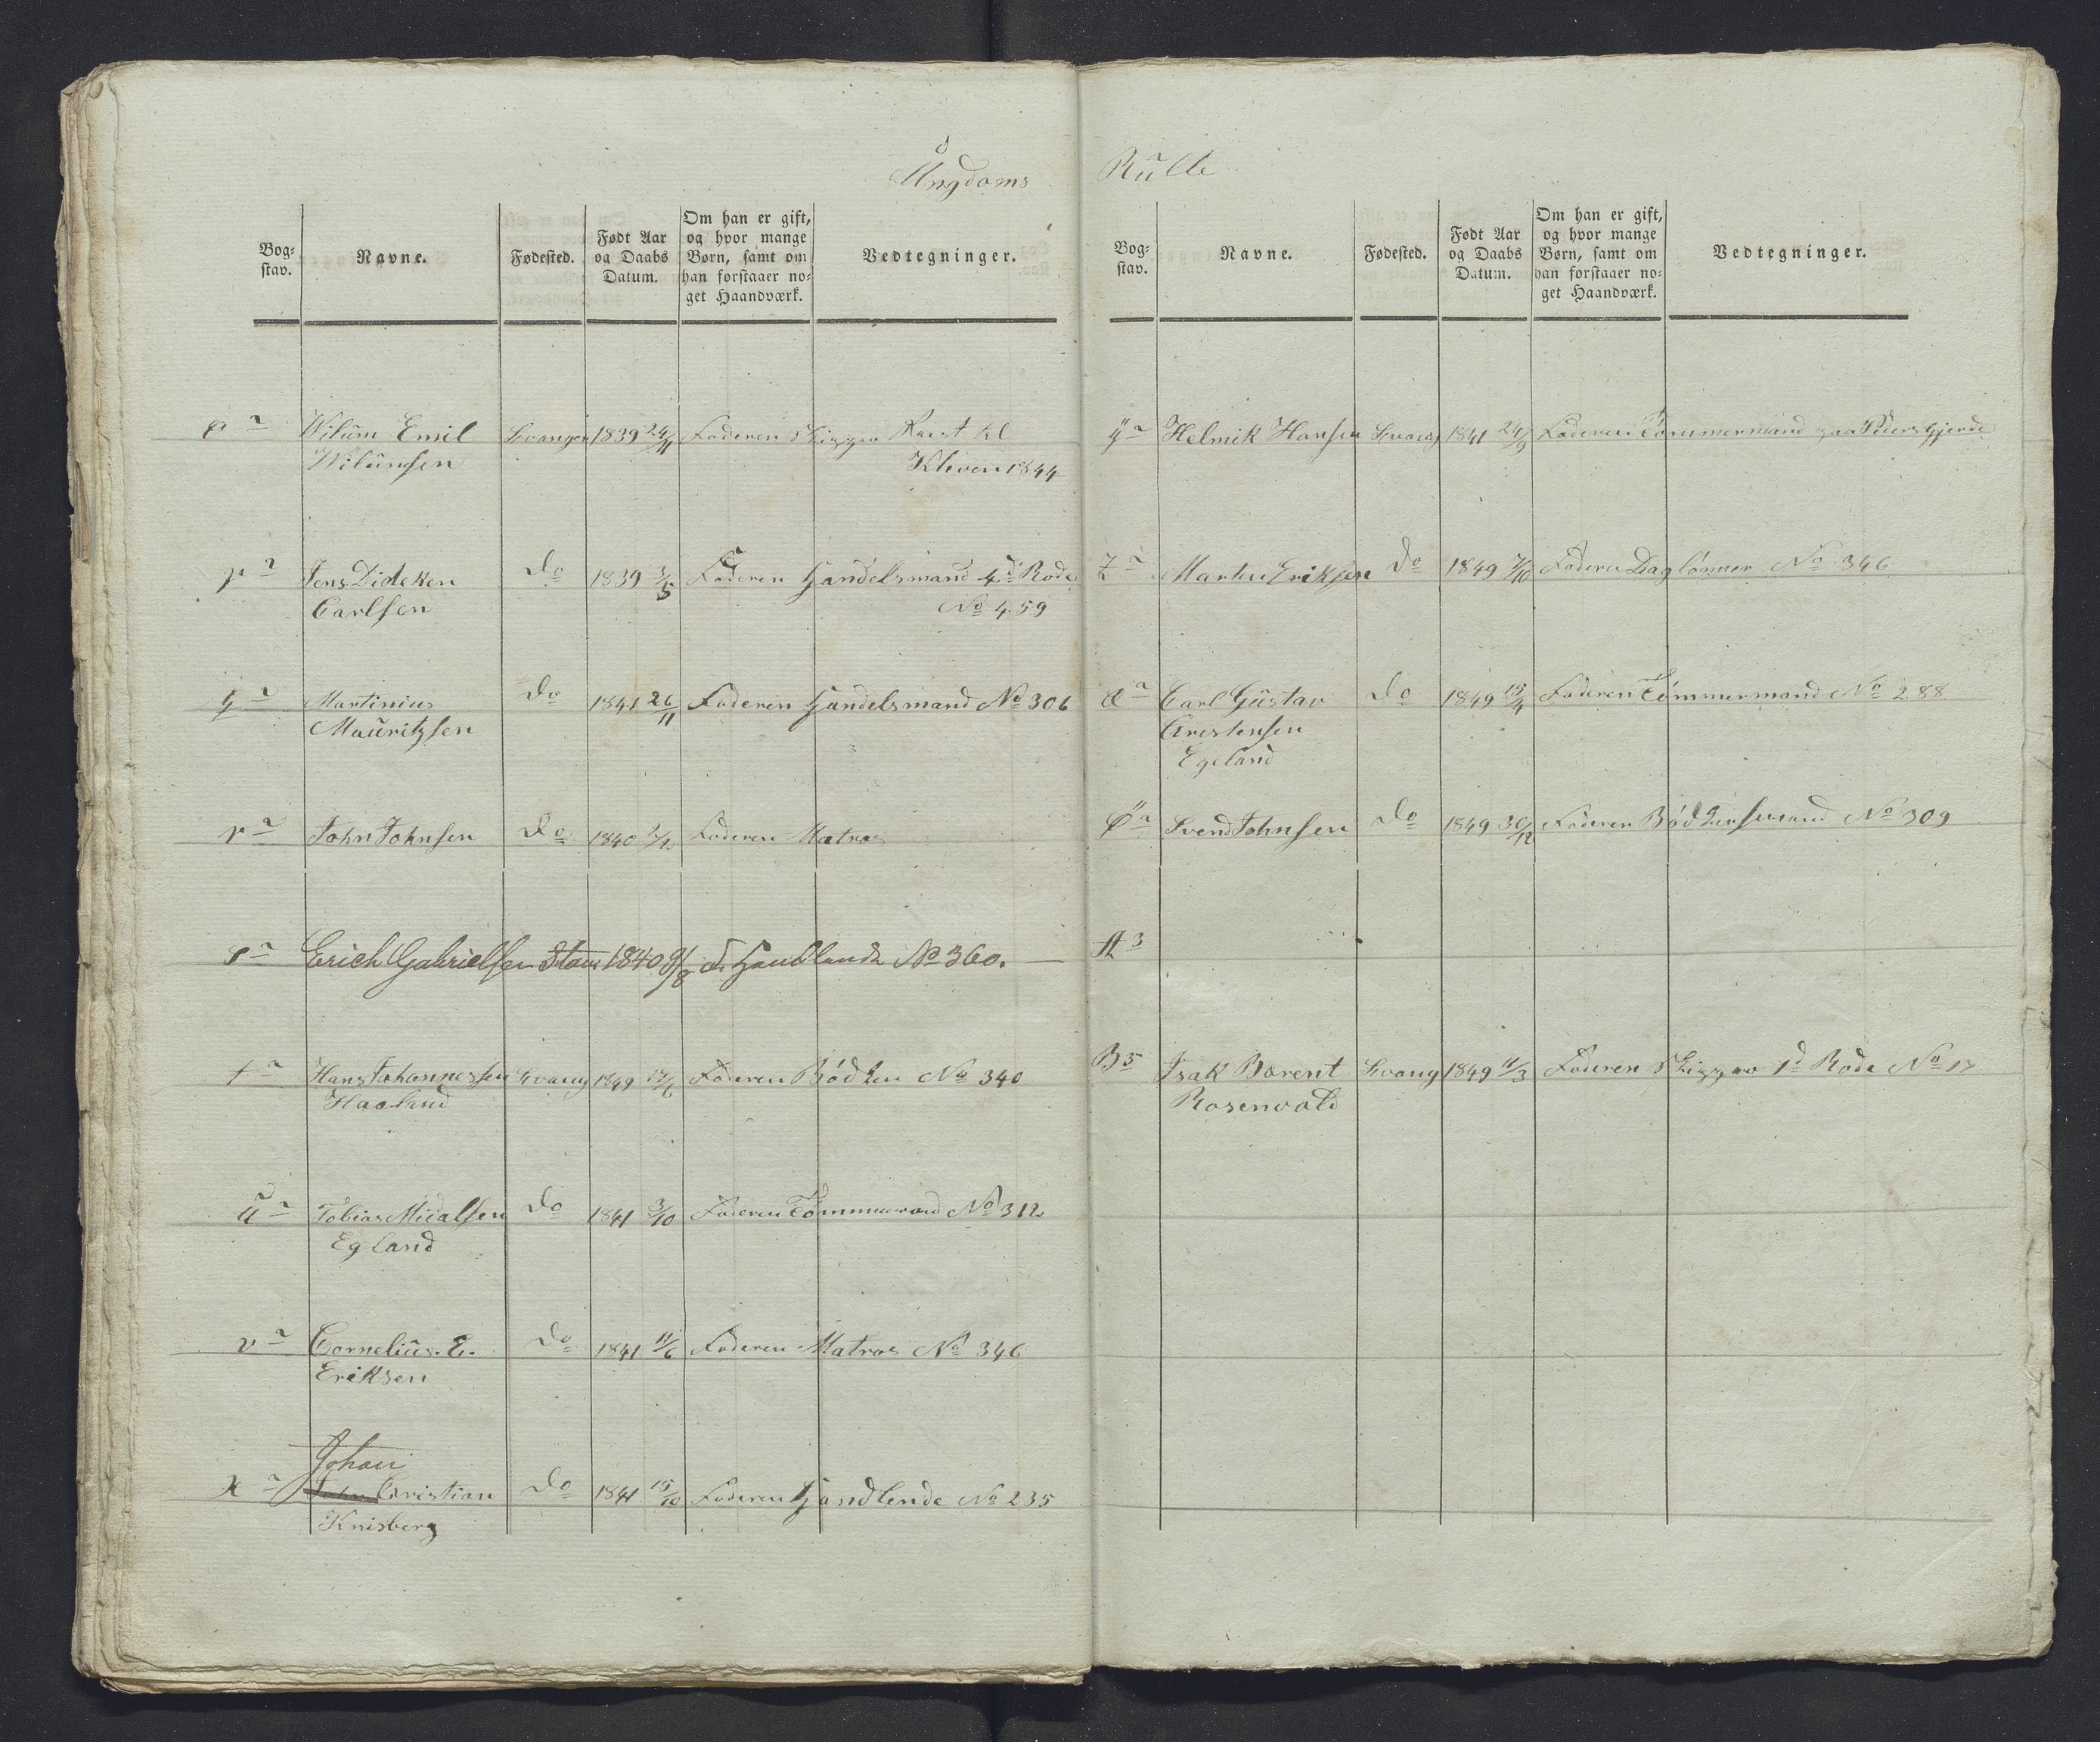 Ungdoms
Bog-
stav.
Navne.
Fødested.
Født Aar
og Daabs
Datum.
Om han er gift,
og hvor mange
Børn, samt om
han forstaaer no-
get Haandværk.
Vedtegninger.
o 2 Wilum Emil Svanger 1839 24/11 Faderen Skipper Reist til
Wilumsen Kleven 1844
p 2 Jens Dideken Do 1839 3/5 Faderen Handelsmand 4d Rode
Carlsen No 459
q 2 Martinius Do 1841 26/11 Faderen Handelsmand No 306
Mauritzsen
r 2 John Johnsen Do 1840 Faderen Matros
s 2 Erich Gabrielsen Stav 1840 9/8 F. Handlende No 360.
t 2 Hans Johannessen Svang 1849 Faderen Bødker No 340
Haaland
u 2 Tobias Micalsen Do 1841 3/10 Faderen Tømmermand No 312
Egland
v 2 Cornelius E. Do 1841 11/6 Faderen Matros No 346
Eriksen
Johan
x 2 John Cristian Do 1841 15/10 Faderen Handlende No 235
Knisberg
Rulle
Bog-
stav.
Navne.
Fødested.
Født Aar
og Daabs
Datum.
Om han er gift,
og hvor mange
Børn, samt om
han forstaaer no-
get Haandværk.
Vedtegninger.
ÿ 2 Helmik Hansen Svang 1841 24/9 Faderen Tømmermand paa Peders Gjerde
z 2 Martin Eriksen Do 1849 7/10 Faderen Daglønner No 346
æ 2 Carl Gustav Do 1849 15/4 Faderen Tømmermand No 288
Cristensen
Egeland
ø 2 Svend Johnsen Do 1849 30/12 Faderen Bødkersvend No 309
A 3
B 3 Isak Barent Svang 1849 11/3 Faderen Skipper 1d Rode No 17
Rosenvald